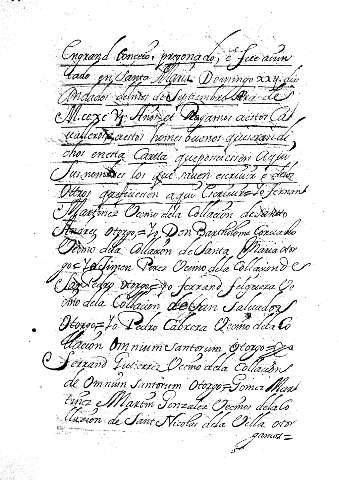 En grand Concexo, pregonado, e fue aiun
tado en Santa Maria Domingo XXV. dias
Andados del mes de Septiembre Era de
M.CCXC y Años: et Rogamos a estos Ca
valleros, a estos homes buenos que seran di
chos en esta Carta que pusiessen Aqui
sus nomes los que sabien escrivir e los
Otros que ficiessen aqui Escrivir = Yo Fernant
Martinez Vecino de la Collacion de Santo
Alvarez otorgo = Yo Don Bartholome
Vecino de la Collacion de Santa Maria otor
go = Yo Simon Perez Vecino de la Collacion de
San Pedro otorgo = Yo Ferrand Felguera Ve
cino de la Collacion de San Salvador
otorgo = Yo Pedro Cabrera Vecino de la Co
llacion Omnium Santorum otorgo = Yo
Ferrand Gutierrez Vecino de la Collacion
de Omnium Santorum otorgo = Gomez Mar
tinez e Martin Gonzalez Vecinos de la Co
llacion de Sant Nicolas de la Villa otor
gamos =